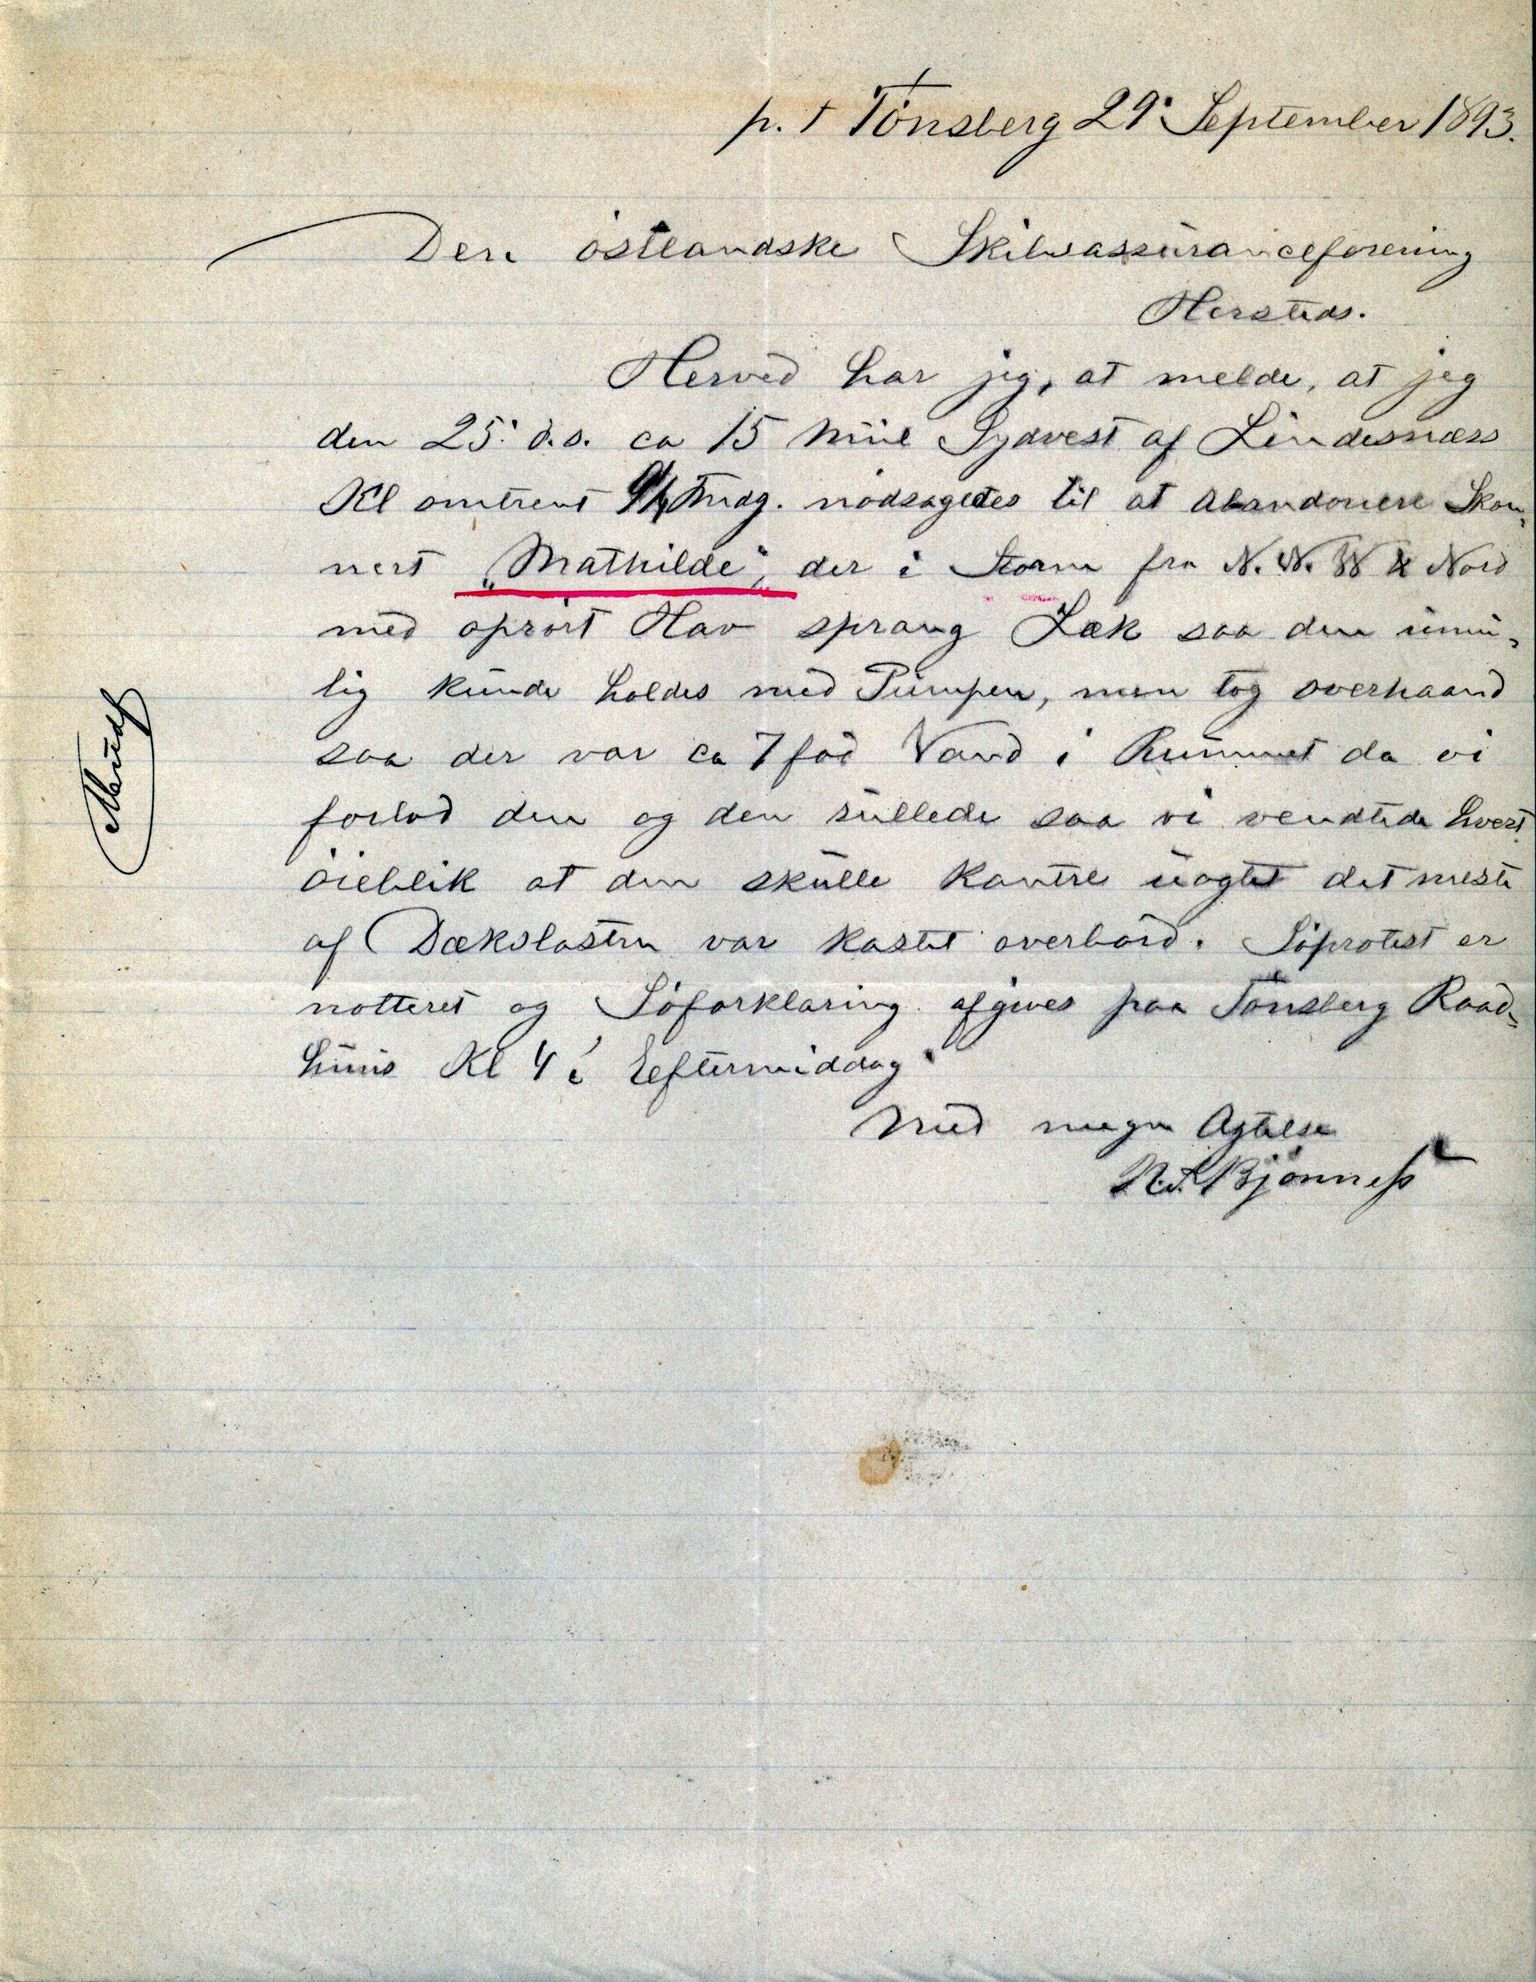 p. t Tönsberg 29' September 1893.
Den östlandske Skibsassuranceforening
Hersteds.
Herved har jeg, at melde, at jeg
den 25' d.s. ca 15 Miil Sydvest af Lindesnæss
Kl omtrent Fmdg. nödsagedes til at abandonere Skon-
nert „Mathilde“, der i Storm fra N.N.W & Nord
med oprört Hav sprang Læk saa den umu-
lig kunde holdes med Pumpen, men tog overhaand
saa der var ca 7 fod Vand i Rummet da vi
forlod den og den rullede saa vi ventede hvert
öieblik at den skulle kantre uagtet det meste
af Dækslasten var kastet overbord. Söprotest er
notteret og Söforklaring afgives paa Tönsberg Raad-
huus Kl 4 i Eeftermiddag.
Med megen Agtelse
N.S. Bjönness